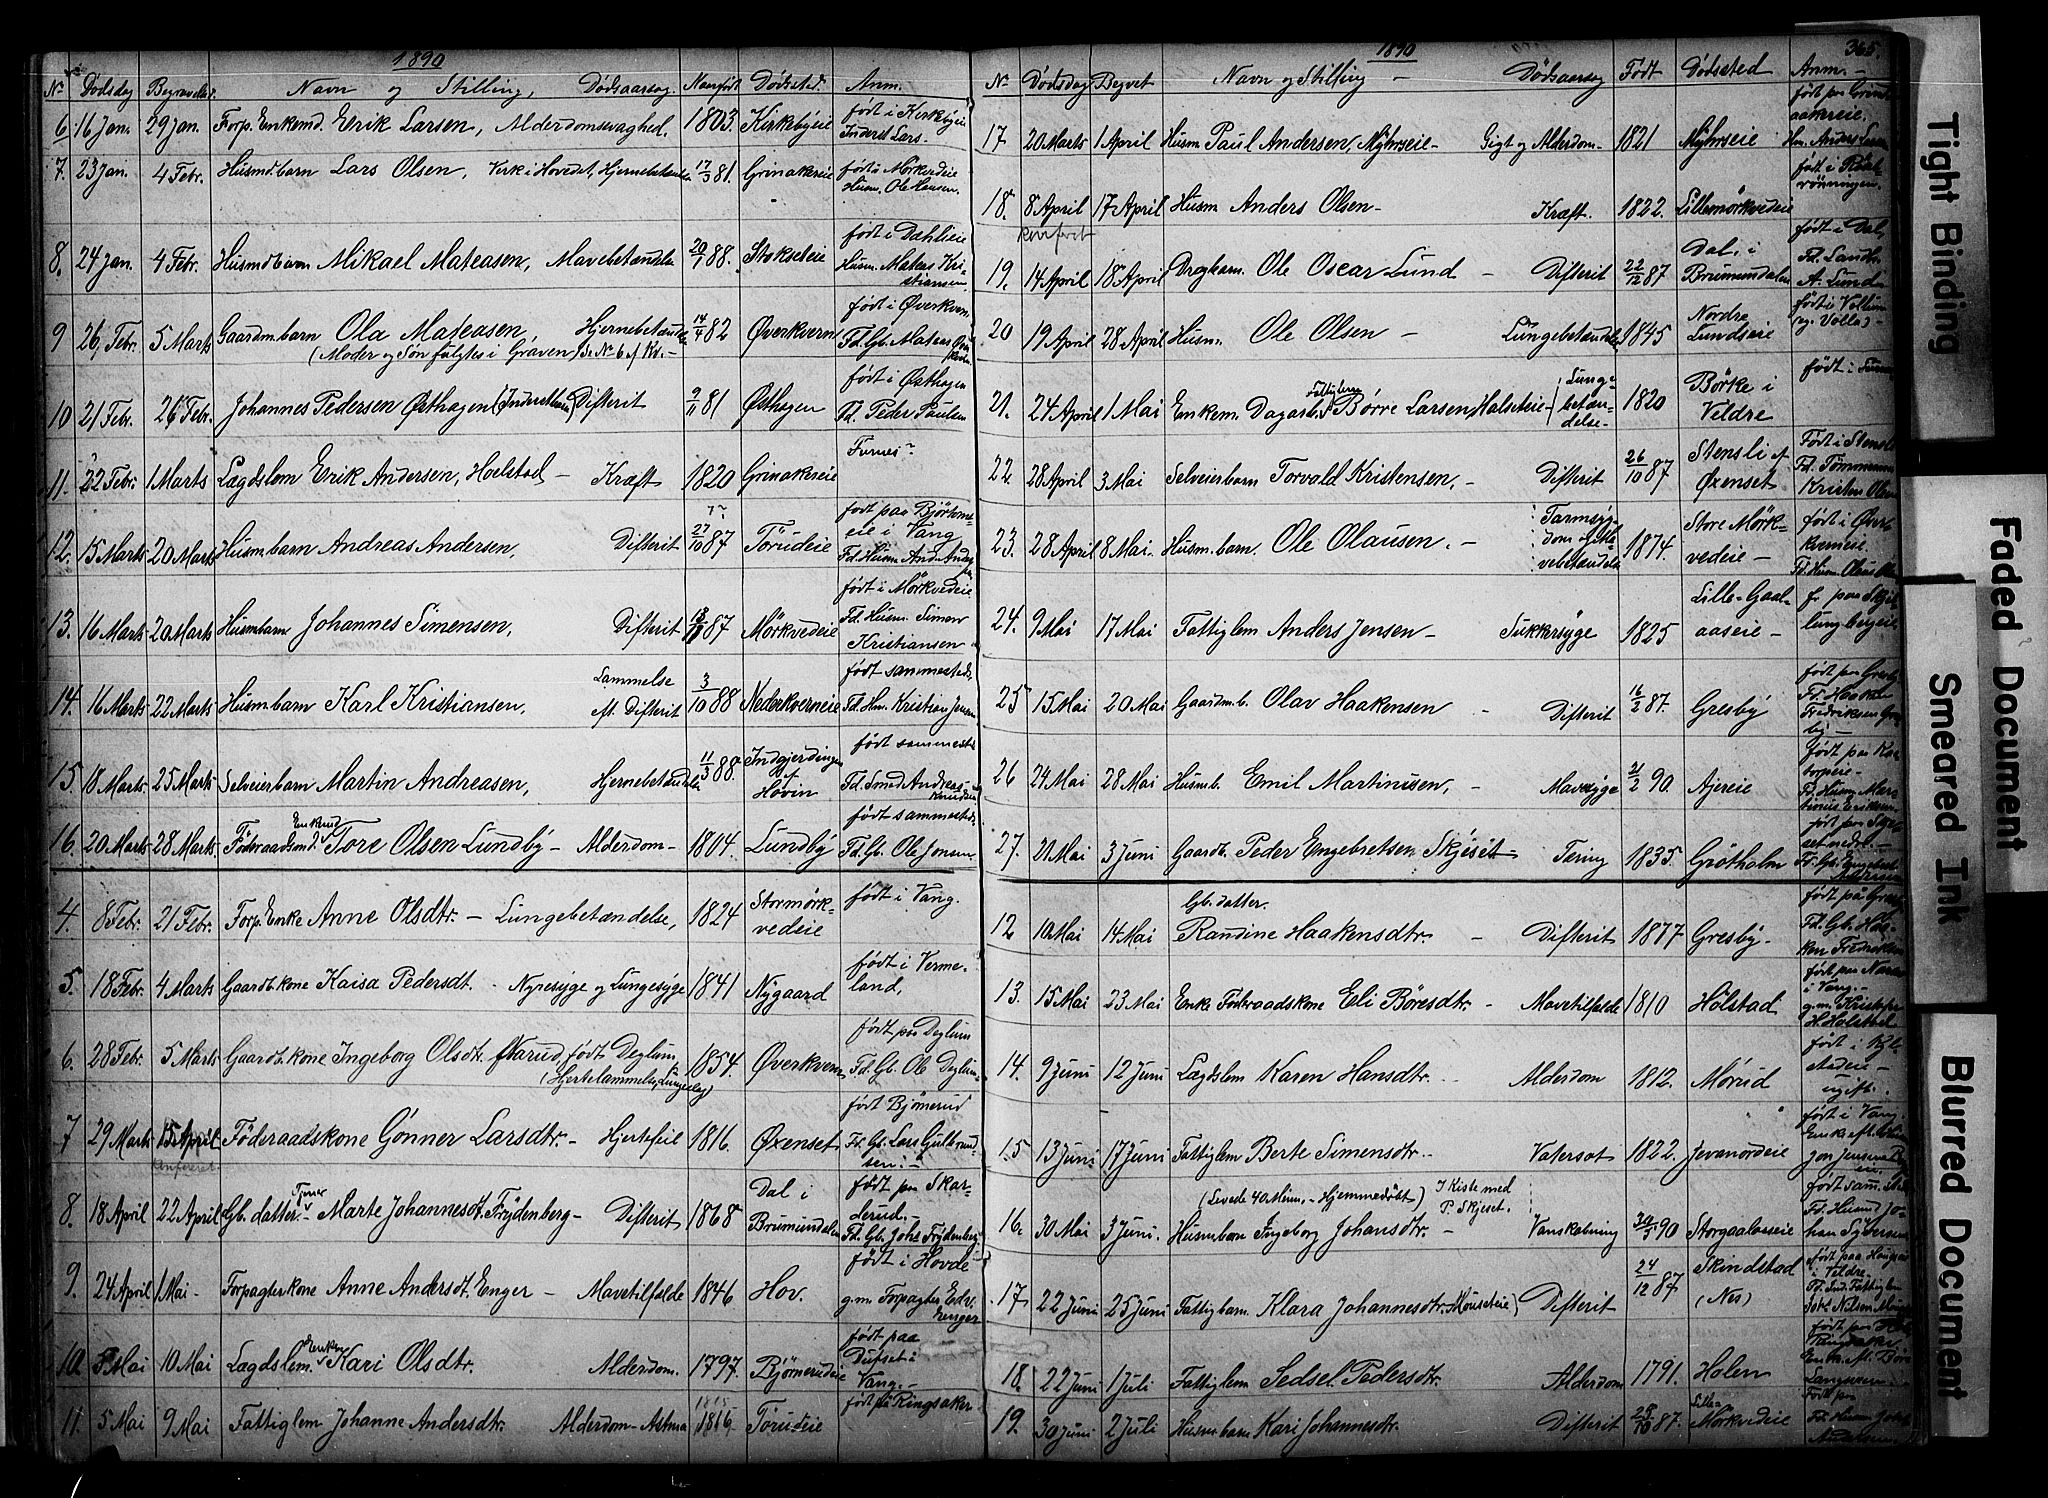 1890
No Dödsdag Begravelsesd. Navn og Stilling, Dödsaarsag. Naarfödt Dödssted. Anm.
6 16 Jan. 29 Jan. Forp. Enkemd. Erik Larsen, Alderdomssvaghed. 1803 Kirkebyeie født i Kirkebyeie
Inderst Lars.
7. 23 Jan. 4 Febr. Husmd.barn Lars Olsen, Verk i Hovedet, Hjernebetændelse 17/3 81. Grinakereie født i Mörkvedeie
Husm. Ole Hansen.
8. 24 Jan. 4 Febr. Husmdbarn Mikael Mateasen, Mavebetændelse 20/1 88. Stokseteie født i Dæhlieie
Husm. Mateas Kristiansen
9 26 Febr. 5 Marts Gaardm.barn Ola Mateasen, Hjernebetændelse 14/4 82 Øverkvern født i Øverkvern
(Moder og Sön fulgtes i Graven) Se No 6 af Kv.— Fd. Gb. Mateas
10 21 Febr. 26 Febr. Johannes Pedersen Østhagen (Inderstbarn) Difterit 9/11 81 Østhagen født i Østhagen
Fd. Peder Paulsen
11. 22 Febr. 1 Marts Lægdslem Erik Andersen, Hoelstad — Kræft 1820 Grinakereie Furnes?
12. 15 Marts 20 Marts Husmbarn Andreas Andersen, Difterit 27/10 87 Törudeie født paa Björtomseie i Vang
Fd. Husm. And. Andersen
13. 16 Marts 20 Marts Husmbarn Johannes Simensen, Difterit 87 Mörkvedeie født i Mörkvedeie
Fd. Husm. Simen
Kristiansen
14. 16 Marts 22 Marts Husmbarn Karl Kristiansen, Lammelse eft. Difterit 3/10 88 Nederkverneie født sammesteds,
Fd. Hm. Kristian Jensen
15. 18 Marts 25 Marts Selveierbarn Martin Andreasen, Hjernebetændelse 11/3 88. Indgjerdingen af Hovin født sammesteds
Fd. Smed Andreas Knudsen
16. 20 Marts 28 Marts. Föderaadsmd. Enkemd Tore Olsen Lundby — Alderdom — 1804. Lundby født sammesteds
Fd. Gb. Ole Jonsen
4. 8 Febr. 21 Febr. Forp. Enke Anne Olsdtr. — Lungebetændelse, 1824 Stormörkvedeie født i Vang.
5. 18 Febr. 4 Marts Gaardb.kone Kaisa Pedersdt. - Nyresyge og Lungesyge 1841 Nygaard født i Vermeland,
6. 28 Febr. 5 Marts Gaardb.kone Ingeborg Olsdtr. Narud, født Deglum, 1854. Øverkvern født paa Deglum
(Hjertelammelse, Lungesyg) Fd. Gb. Ole Deglum
7 29 Marts 15 April Föderaadskone Gönner Larsdtr. — Hjertefeil 1816. Øxenset født Bjömerud
konfereret Fd. Gb. Lars Gulbrandsen. —
8. 18 April 22 April Gb. datter. Tjener Marte Johannesdt. Frydenberg — Difterit 1868 Dal i Brumundalen født paa Skarderud. —
Fd. Gb. Johs Frydenberg
9. 24 April 1 Mai — Forpagterkone Anne Andersdt. Enger — Mavetilfælde 1846 Hov. født i Hovde
g.m. Forpagter Edv. Enger
10. 5 Mai 10 Mai Lægdslem. Enken Kari Olsdtr. Alderdom. 1797. Bjömerudeie født paa
Dufset i
Vang. —
11. 5 Mai 9 Mai Fattiglem Johanne Andersdtr. Alderdom — Astma 1815 1816 Törudeie født på Ringsaker
1890 365.
No Dödsdag Begvet Navn og Stilling — Dödsaarsag Födt Dödssted Anm. —
17. 20 Marts 1 April Husm Paul Andersen, Myhrseie — Gigt og Alderdom — 1821 Myhrseie født paa Grinakereie.
18. 8 April 17 April Husm Anders Olsen — Kræft. 1822. Lillemörkvedeie
konferet
19. 14 April 18 April Dregbarn. Ole Oscar Lund — Difterit 22/12 87 Dal, i Brumundalen født i Dal,
Fd. Landh.
A. Lund
20 19 April 28 April Husm. Ole Olsen — Lungebetændelse 1845 Nordre Lundseie
21. 24 April 1 Mai Enkem. Dagarb. Fattiglem Börre Larsen, Halseteie — Lungebetændelse — 1820 Börke i Veldre født i
22. 28 April 3 Mai Selveierbarn Torvald Kristensen, — Difterit 26/10 87 Stensli af Øxenset Født i Stensli
Fd. Tömmermand
Kristen Olsen
23. 28 April 8 Mai. Husm.barn. Ole Olausen. — Tarmsygdom og Mavebetændelse 1874 Store Mörkvedeie — født i Øverkverneie.
Fd. Husm. Olaus
24. 9 Mai 17 Mai Fattiglem Anders Jensen — Sukkersyge 1825 Lille-Gaalaaseie — f. paa Skjellungbergeie
25 15 Mai 20 Mai Gaardm.b. Olav Haakensen — Difterit 16/2 87. Gresby født paa Gresby
Fd. Haaken
Fredriksen Gresby —
26 24 Mai 28 Mai Husm.b. Emil Martinusen, — Mavesyge 21/2 90. Ajereie født paa
Fd. Husm. Martinius
27. 21 Mai 3 Juni Gaardb. Peder Engebretsen Skjeset — Tæring 1835. Gröthalm født paa Skjeset nedre. —
Fd. Gb. Engebret
12 10 Mai 14 Mai Gb. datter.
Randine Haakensdtr. — Difterit 1877 Gresby. født på Gresby
Fd. Gb. Haaken Fredriksen
13. 15 Mai 23 Mai Enke Föderaadskone Eli Böresdtr. — Mavetilfælde 1810 Hölstad født paa
i Vang. —
g.m. Kristofer
H. Holstad
14. 9 Juni 12 Juni Lægdslem Karen Hansdtr. — Alderdom 1812. Mörud født i
ugift. —
15 13 Juni 17 Juni Fattiglem Berte Simensdtr. — Vatersot 1822. Jevanordeie født i Vang.
Enke eft. Husm
(Levede 40 Min. — Hjemmedöbt) I Kiste med P. Skjeset.
16. 30 Mai 3 Juni. Husmbarn Ingeborg Johansdtr. — Vanskabning 30/5 90 Storgaalaaseie født samm. st.
Fd. Husmd Johan Syversen
17 22 Juni 25 Juni Fattigbarn. Klara Johannesdtr. Mönseteie) Difterit 24/12 87 Skindstad (Nes) født paa
i Veldre.
Fd. Ind. Fattiglem
Johs Nilsen
18. 22 Juni 1 Juli Fattiglem Sedsel Pedersdtr. Alderdom 1791. Holen født paa
Enke eft. Börre
19. 30 Juni 2 Juli Husmbarn Kari Johannesdtr. Difterit 28/10 87. Lille-Mörkvedeie Født paa
Fd. Husm. Johs
Tight Binding
Faded Document
Smeared Ink
Blurred Document